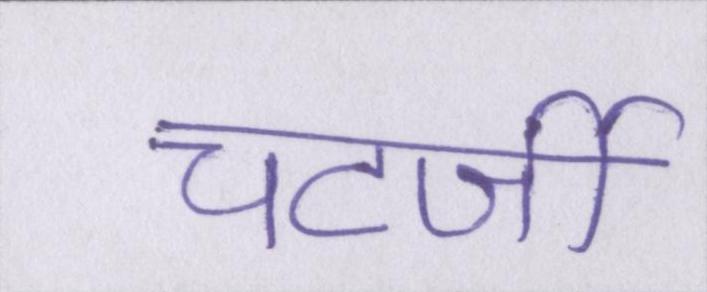 चटर्जी